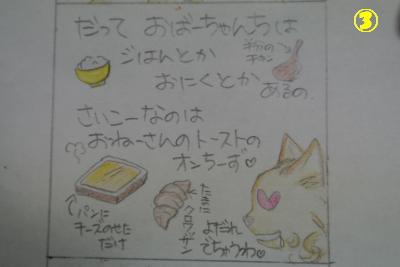 ③
だって おばーちゃんちは
ごはんとか
粉のチキン
おにくとか
あるの
さいこーなのは
おねーさんのトーストの
オンちーず♡
↑パンに
チーズのせた
だけ
たまに
クロワッサン
よだれ
でちゃうわ♡